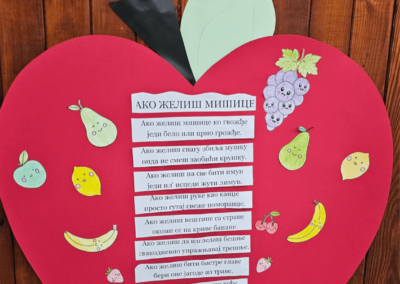 АКО ЖЕЛИШ МИШИЦЕ
Ако желиш мишице ко гвожђе
једи бело или црно грожђе.
Ако желиш снагу збиља мушку
онда не смеш заобићи крушку.
Ако желиш на све бити имун
једи ил' исцеди жути лимун.
Ако желиш руке као канџе
просто гутај свеже поморанџе.
Ако желиш вештине са стране
околи се на криве банане.
Ако желиш да изгледаш
свакодневно упражњавај трешње.
Ако желиш бити бистре главе
бери оне јагоде из траве.